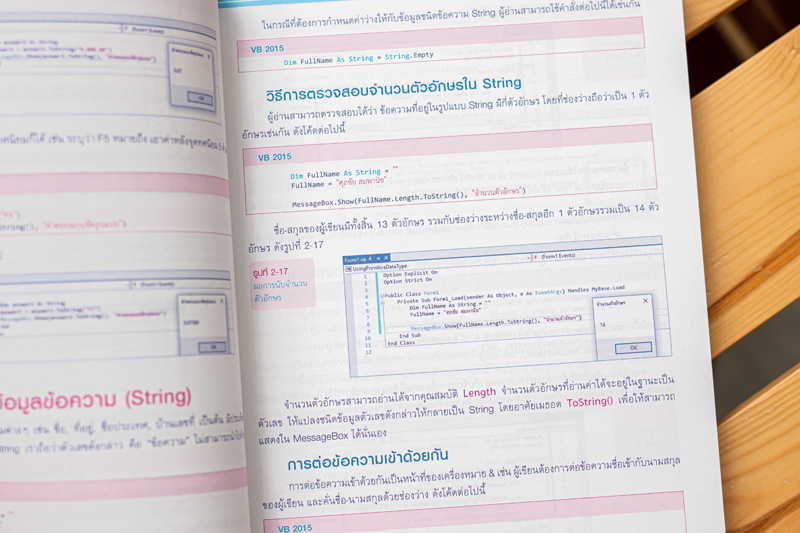 answer1 As String
(Form1 Events)
OK
ทศนิยมก็ได้ เช่น ระบุว่า F5 หมายถึง เอาค่าหลังจุดทศนิยม 5
(Form1 Events)
OK
ข้อมูลข้อความ (String)
ต่างๆ เช่น ชื่อ, ที่อยู่, ชื่อประเทศ, บ้านเลขที่ เป็นต้น
String เราถือว่าตัวเลขดังกล่าว คือ "ข้อความ" ไม่สามารถ
ในกรณีที่ต้องการกำหนดค่าว่างให้กับข้อมูลชนิดข้อความ String ผู้อ่านสามารถใช้คำสั่งต่อไปนี้ได้เช่นกัน
VB 2015
Dim FullName As String = String.Empty
วิธีการตรวจสอบจำนวนตัวอักษรใน String
ผู้อ่านสามารถตรวจสอบได้ว่า ข้อความที่อยู่ในรูปแบบ String มีกี่ตัวอักษร โดยที่ช่องว่างถือว่าเป็น 1 ตัว
อักษรเช่นกัน ดังโค้ดต่อไปนี้
VB 2015
Dim FullName As String = ""
FullName = "ศุภชัย สมพานิช"
MessageBox.Show(FullName.Length.ToString(), "จำนวนตัวอักษร")
ชื่อ-สกุลของผู้เขียนมีทั้งสิ้น 13 ตัวอักษร รวมกับช่องว่างระหว่างชื่อ-สกุลอีก 1 ตัวอักษรรวมเป็น 14 ตัว
อักษร ดังรูปที่ 2-17
รูปที่ 2-17
ผลการนับจำนวน
ตัวอักษร
Form1.vb
UsingPrimitiveDataType
(Form1 Events)
1 Option Explicit On
2 Option Strict On
3
4 Public Class Form1
5 Private Sub Form1_Load(sender As Object, e As EventArgs) Handles MyBase.Load
6 Dim FullName As String = ""
7 FullName = "ศุภชัย สมพานิช"
8
9 MessageBox.Show(FullName.Length.ToString(), "จำนวนตัวอักษร")
10 End Sub
11 End Class
12
จำนวนตัวอักษร
14
OK
จำนวนตัวอักษรสามารถอ่านได้จากคุณสมบัติ Length จำนวนตัวอักษรที่อ่านค่าได้จะอยู่ในฐานะเป็น
ตัวเลข ให้แปลงชนิดข้อมูลตัวเลขดังกล่าวให้กลายเป็น String โดยอาศัยเมธอด ToString() เพื่อให้สามารถ
แสดงใน MessageBox ได้นั่นเอง
การต่อข้อความเข้าด้วยกัน
การต่อข้อความเข้าด้วยกันเป็นหน้าที่ของเครื่องหมาย & เช่น ผู้เขียนต้องการต่อข้อความชื่อเข้ากับนามสกุล
ของผู้เขียน และคั่นชื่อ-นามสกุลด้วยช่องว่าง ดังโค้ดต่อไปนี้
VB 2015